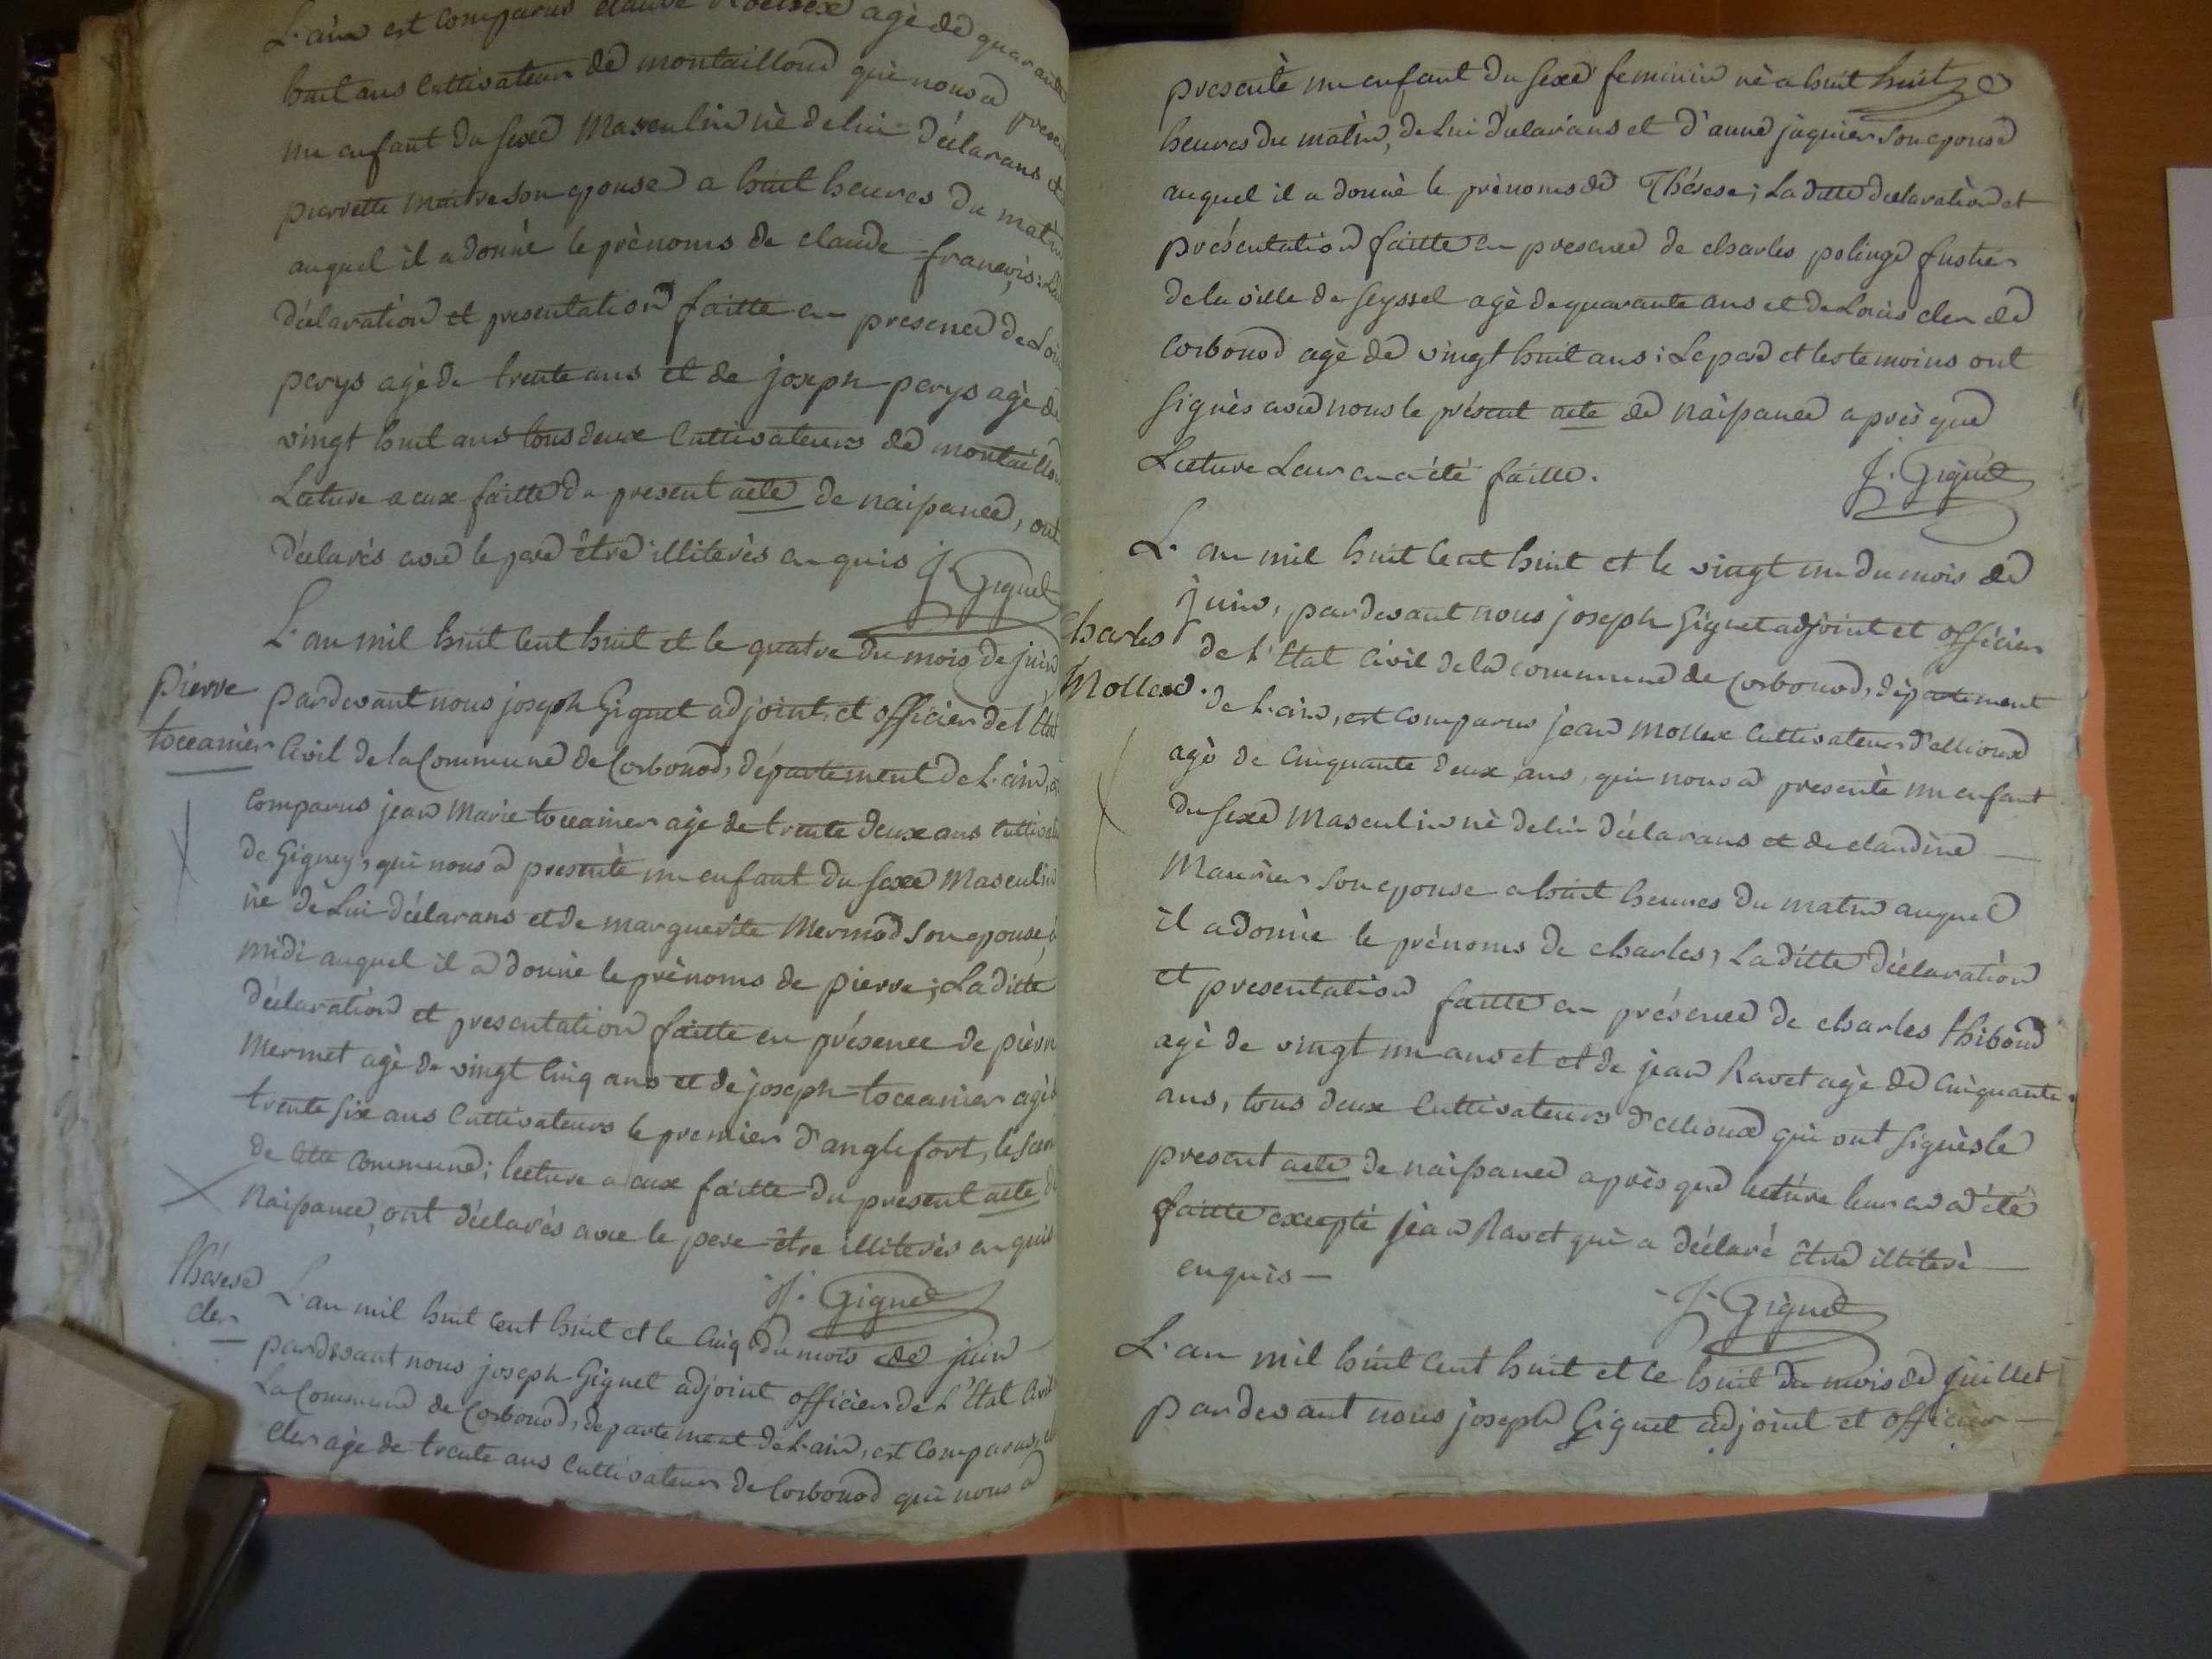 L'ain est comparus claude agè de quarante
huit ans Cultivateur de montailloud qui nous a presenté
un enfant du sexe Masculin nè de lui déclarans et
pierrette maitre son epouse a huit heures du matin
auquel il a donnè le prènoms de claude françois; La
déclaration et presentation faitte en presence de Louis
perys agè de trente ans et de joseph perys agè de
vingt huit ans tous deux Cultivateurs de montailloud
Lecture a eux faitte du present acte de naissance, ont
déclarès avec le pere être illiterès enquis J. Giguet
L'an mil huit Cent huit et le quatre du mois de juin
pierre
toccanier
pardevant nous joseph Giguet adjoint et officier de l'Etat
Civil de la Commune de Corbonod, département de L'ain, est
Comparus jean Marie toccanier agè de trente deux ans Cultivateur
de Gigney, qui nous a presentè un enfant du sexe Masculin
nè de Lui déclarans et de marguerite Mermod son epouse, à
midi auquel il a donnè le prènoms de pierre; La ditte
déclaration et presentation faitte en présence de pierre
Mermet agè de vingt Cinq ans et de joseph toccanier agè de
trente six ans Cultivateurs le premier d'anglefort, le second
de Cette Commune; lecture a eux faitte du present acte de
Naissance, ont déclarès avec le pere être illiterès enquis
J. Giguet
thérese
cler
L'an mil huit Cent huit et le Cinq du mois de juin
pardevant nous joseph Giguet adjoint officier de L'Etat Civil
La Commune de Corbonod, departement de L'ain, est Comparus,
cler agè de trente ans Cultivateur de Corbonod qui nous a
presentè un enfant du sexe feminin nè a huit huit
heures du matin, de Lui déclarans et d'anne jaquier son epouse
auquel il a donnè le prènoms de Thérese; La ditte déclaration et
présentation faitte en presence de charles polinge fustier
de la ville de Seyssel agè de quarante ans et de Louis cler de
Corbonod agè de vingt huit ans; Le pere et les temoins ont
signès avec nous le présent acte de naissance après que
Lecture Leur en a été faitte. J. Giguet
L'an mil huit Cent huit et le vingt un du mois de
juin, pardevant nous joseph Giguet adjoint et officier
Charles
Mollex.
de L'Etat Civil de la commune de Corbonod, dèpartement
de L'ain, est comparus jean mollex Cultivateur d'ellioux
agè de Cinquante deux ans, qui nous a presentè un enfant
du sexe Masculin nè de lui déclarans et de claudine
Maurier son epouse a huit heures du matin auquel
il a donnè le prènoms de charles; La ditte déclaration
et presentation faitte en présence de charles thiboud
agè de vingt un ans et et de jean Ravet agè de Cinquante
ans, tous deux Cultivateurs d'ellioux qui ont signès le
present acte de naissance après que lecture leur en a été
faitte excepté jean Ravet qui a déclaré être illiterè
enquis —
J. Giguet
L'an mil huit Cent huit et le huit du mois de juillet
pardevant nous joseph Giguet adjoint et officier